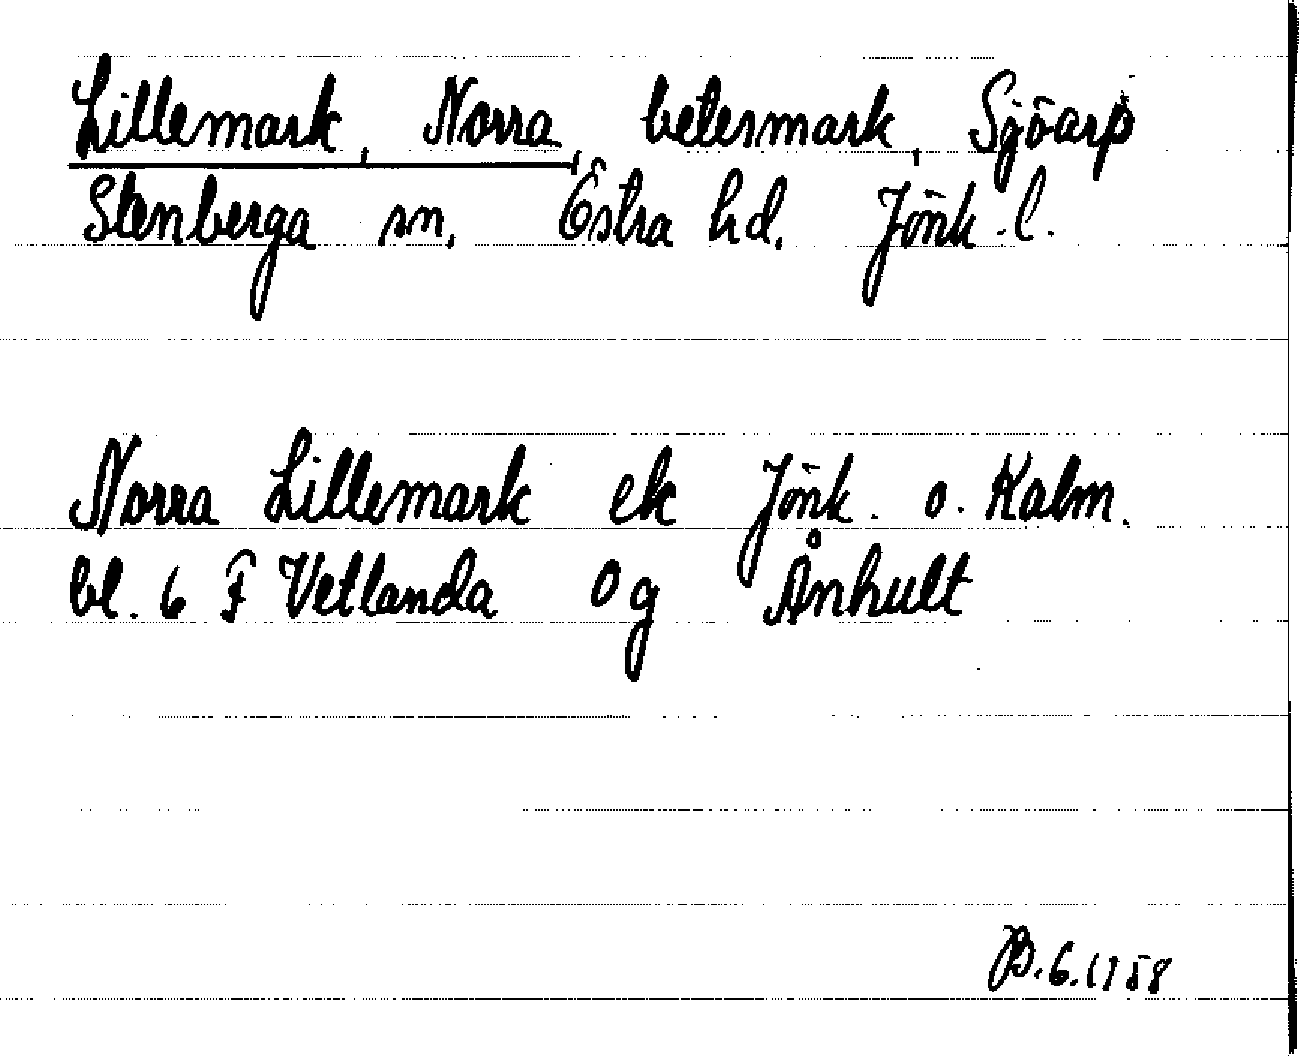 Lillemark, Norra, betesmark, Sjöarp
Stenberga sn. Östra hd. Jönk. l.
Norra Lillemark ek Jönk. o. Kalm.
bl. 6 F Vetlanda Og Ånhult